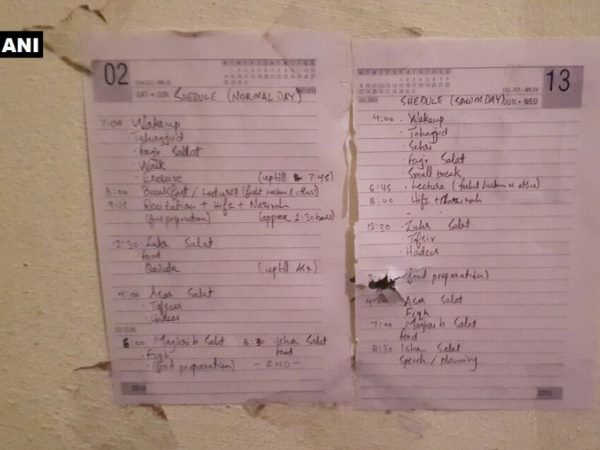 ANI
02
SAT • JUN SHEDULE (NORMAL DAY)
4:00 Wakeup
Tahajjud
• Fajr Sallat
• Walk
• Exercise (uptill 7:45)
8:00 Breakfast / Lectures
9:15 Recitation + Hifz + Nazirah
(food preparation) (approx 1:30 hours)
12:30 Zuhr Salat
food
• Qailula (uptill Asr)
4:00 • Asar Salat
• Tafseer
• Hadees
6:30 Maghrib Salat 8:30 Isha Salat
• Fiqh food
• (food preparation) — END —
2012
13
SHEDULE (SAWM DAY) JUN • WED
4:00 • Wakeup
• Tahajjud
• Sehri
• Fajr Salat
Small break
6:45 • Lecture
8:00 • Hifz +
12:30 • Zuhr Salat
• Tafsir
• Hadees
(food preparation)
Asar Salat
Fiqh
7:00 • Maghrib Salat
food
8:30 • Isha Salat
Speech / planning
2012